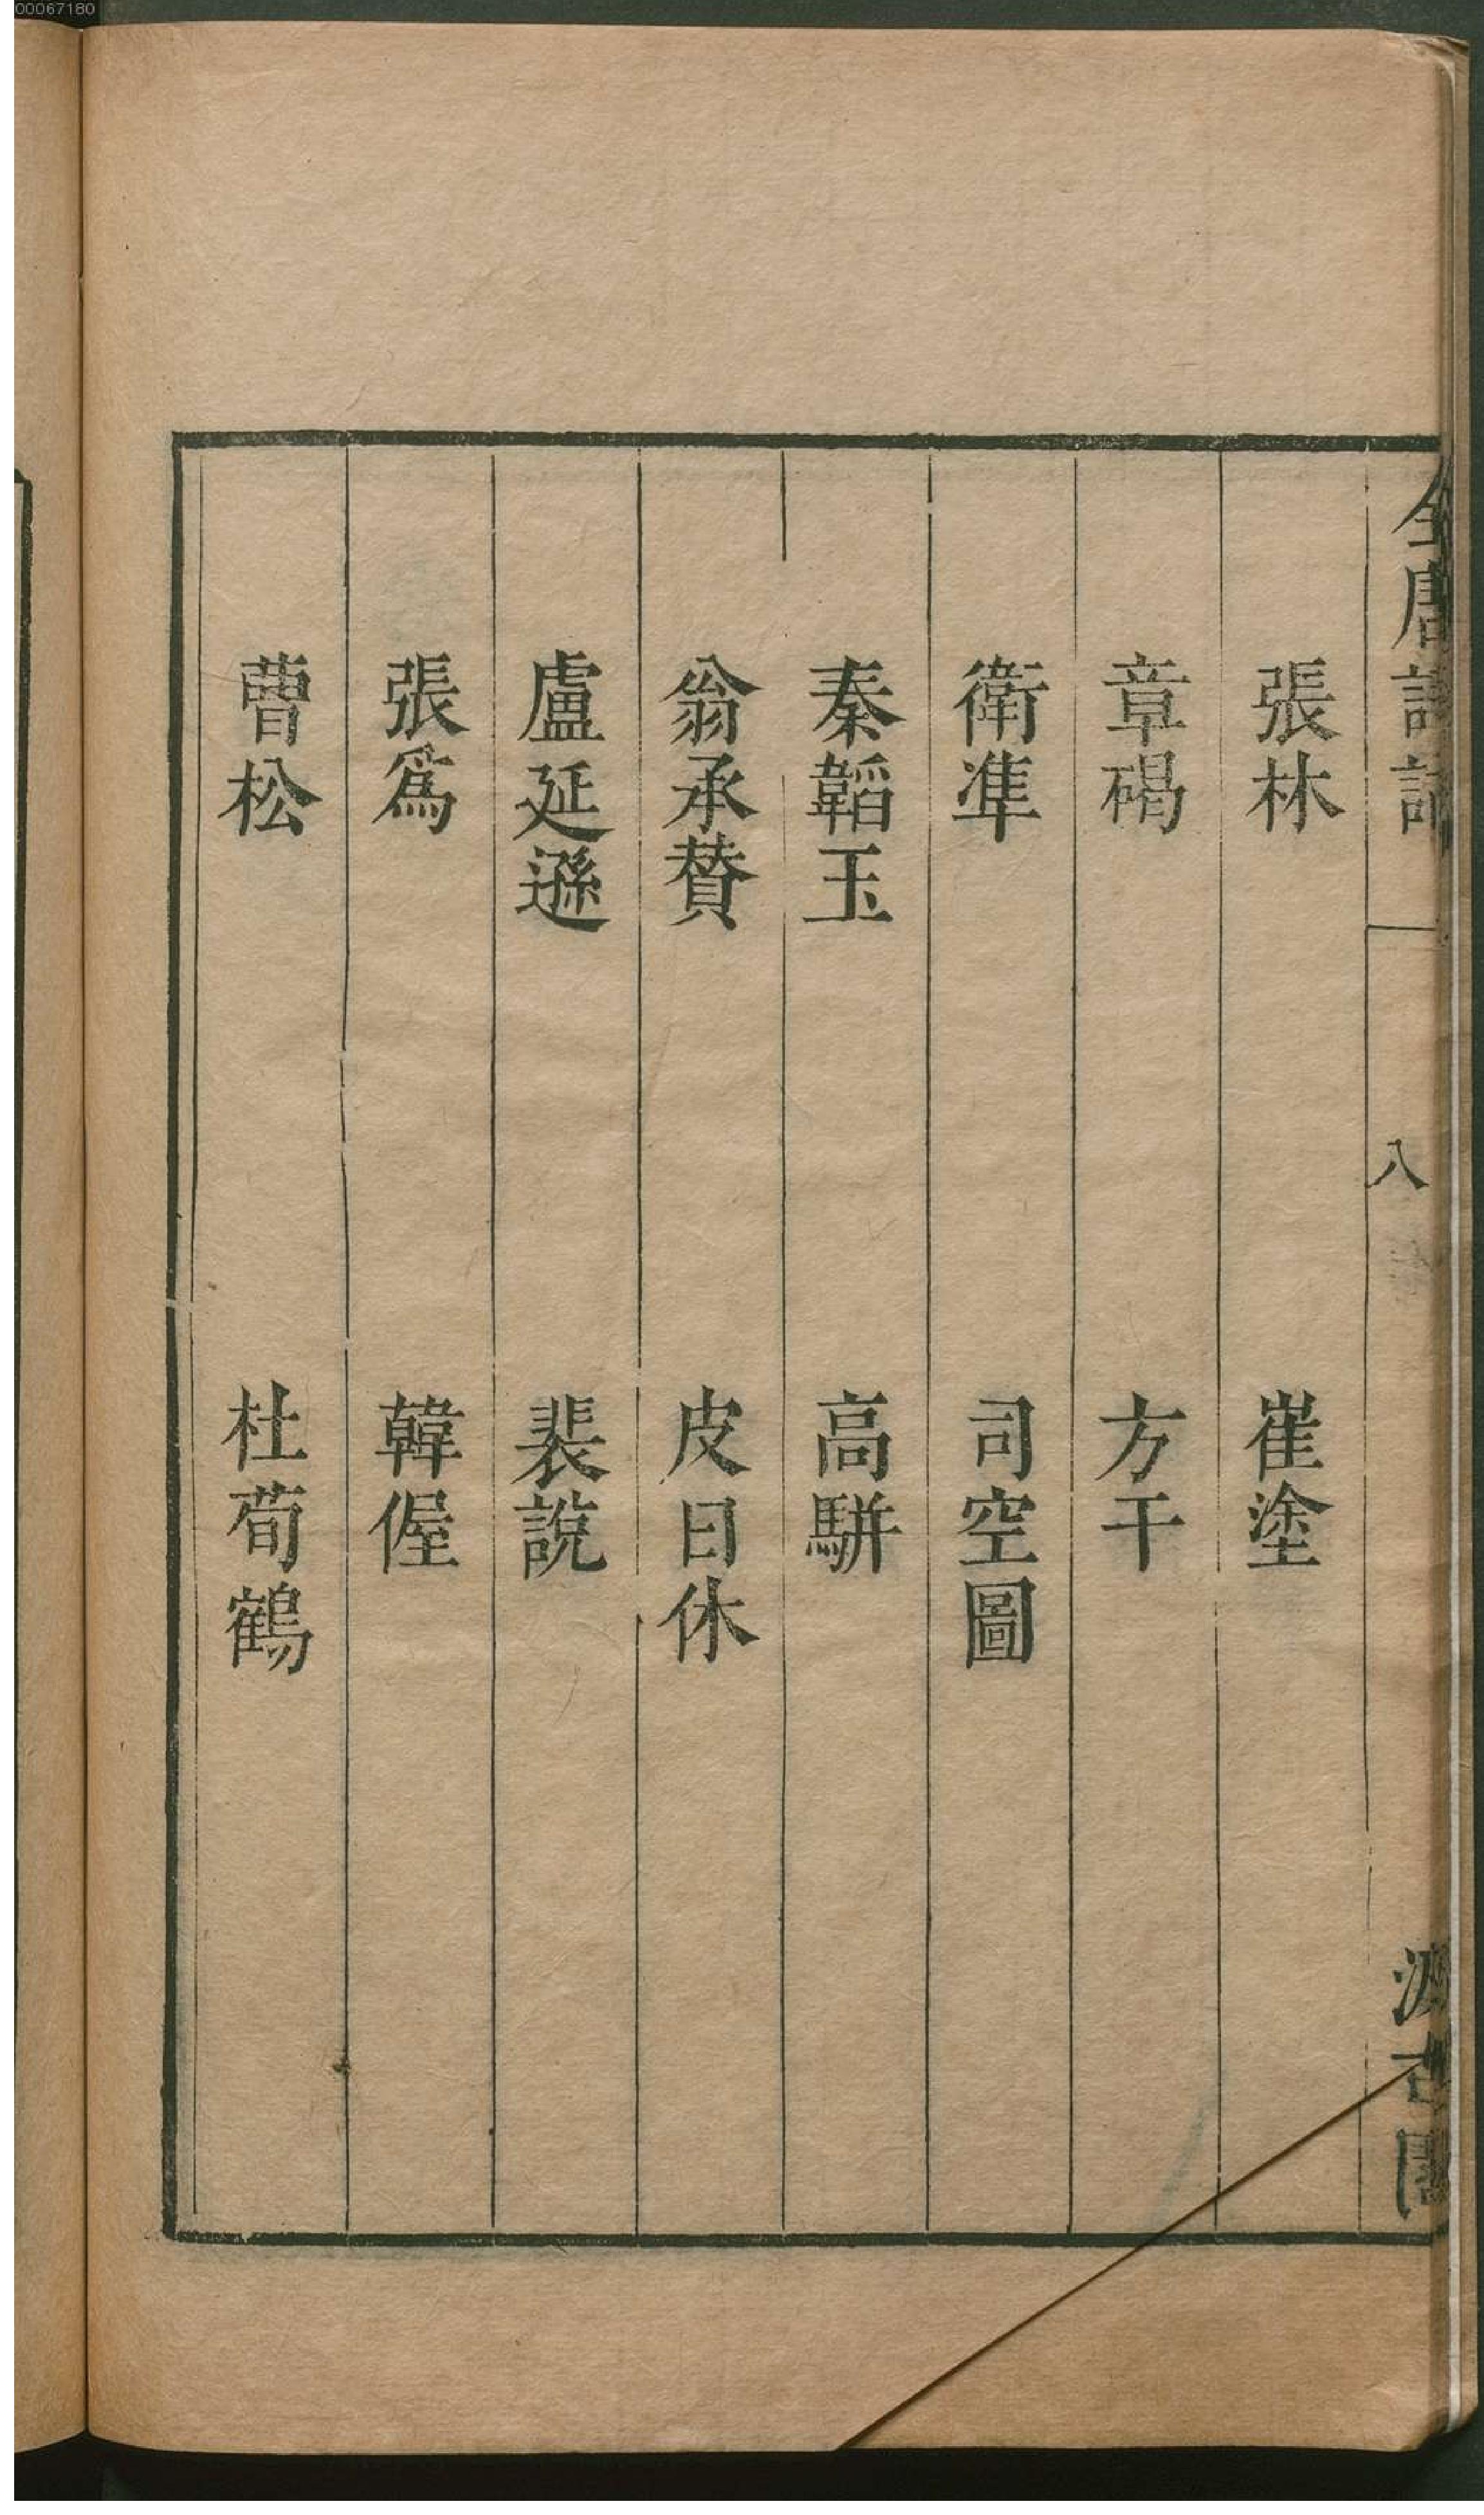 00067180
全唐詩話
八
汲古閣
張林 崔塗
章碣 方干
衛準 司空圖
秦韜玉 高駢
翁承贊 皮日休
盧延遜 裴說
張爲 韓偓
曹松 杜荀鶴